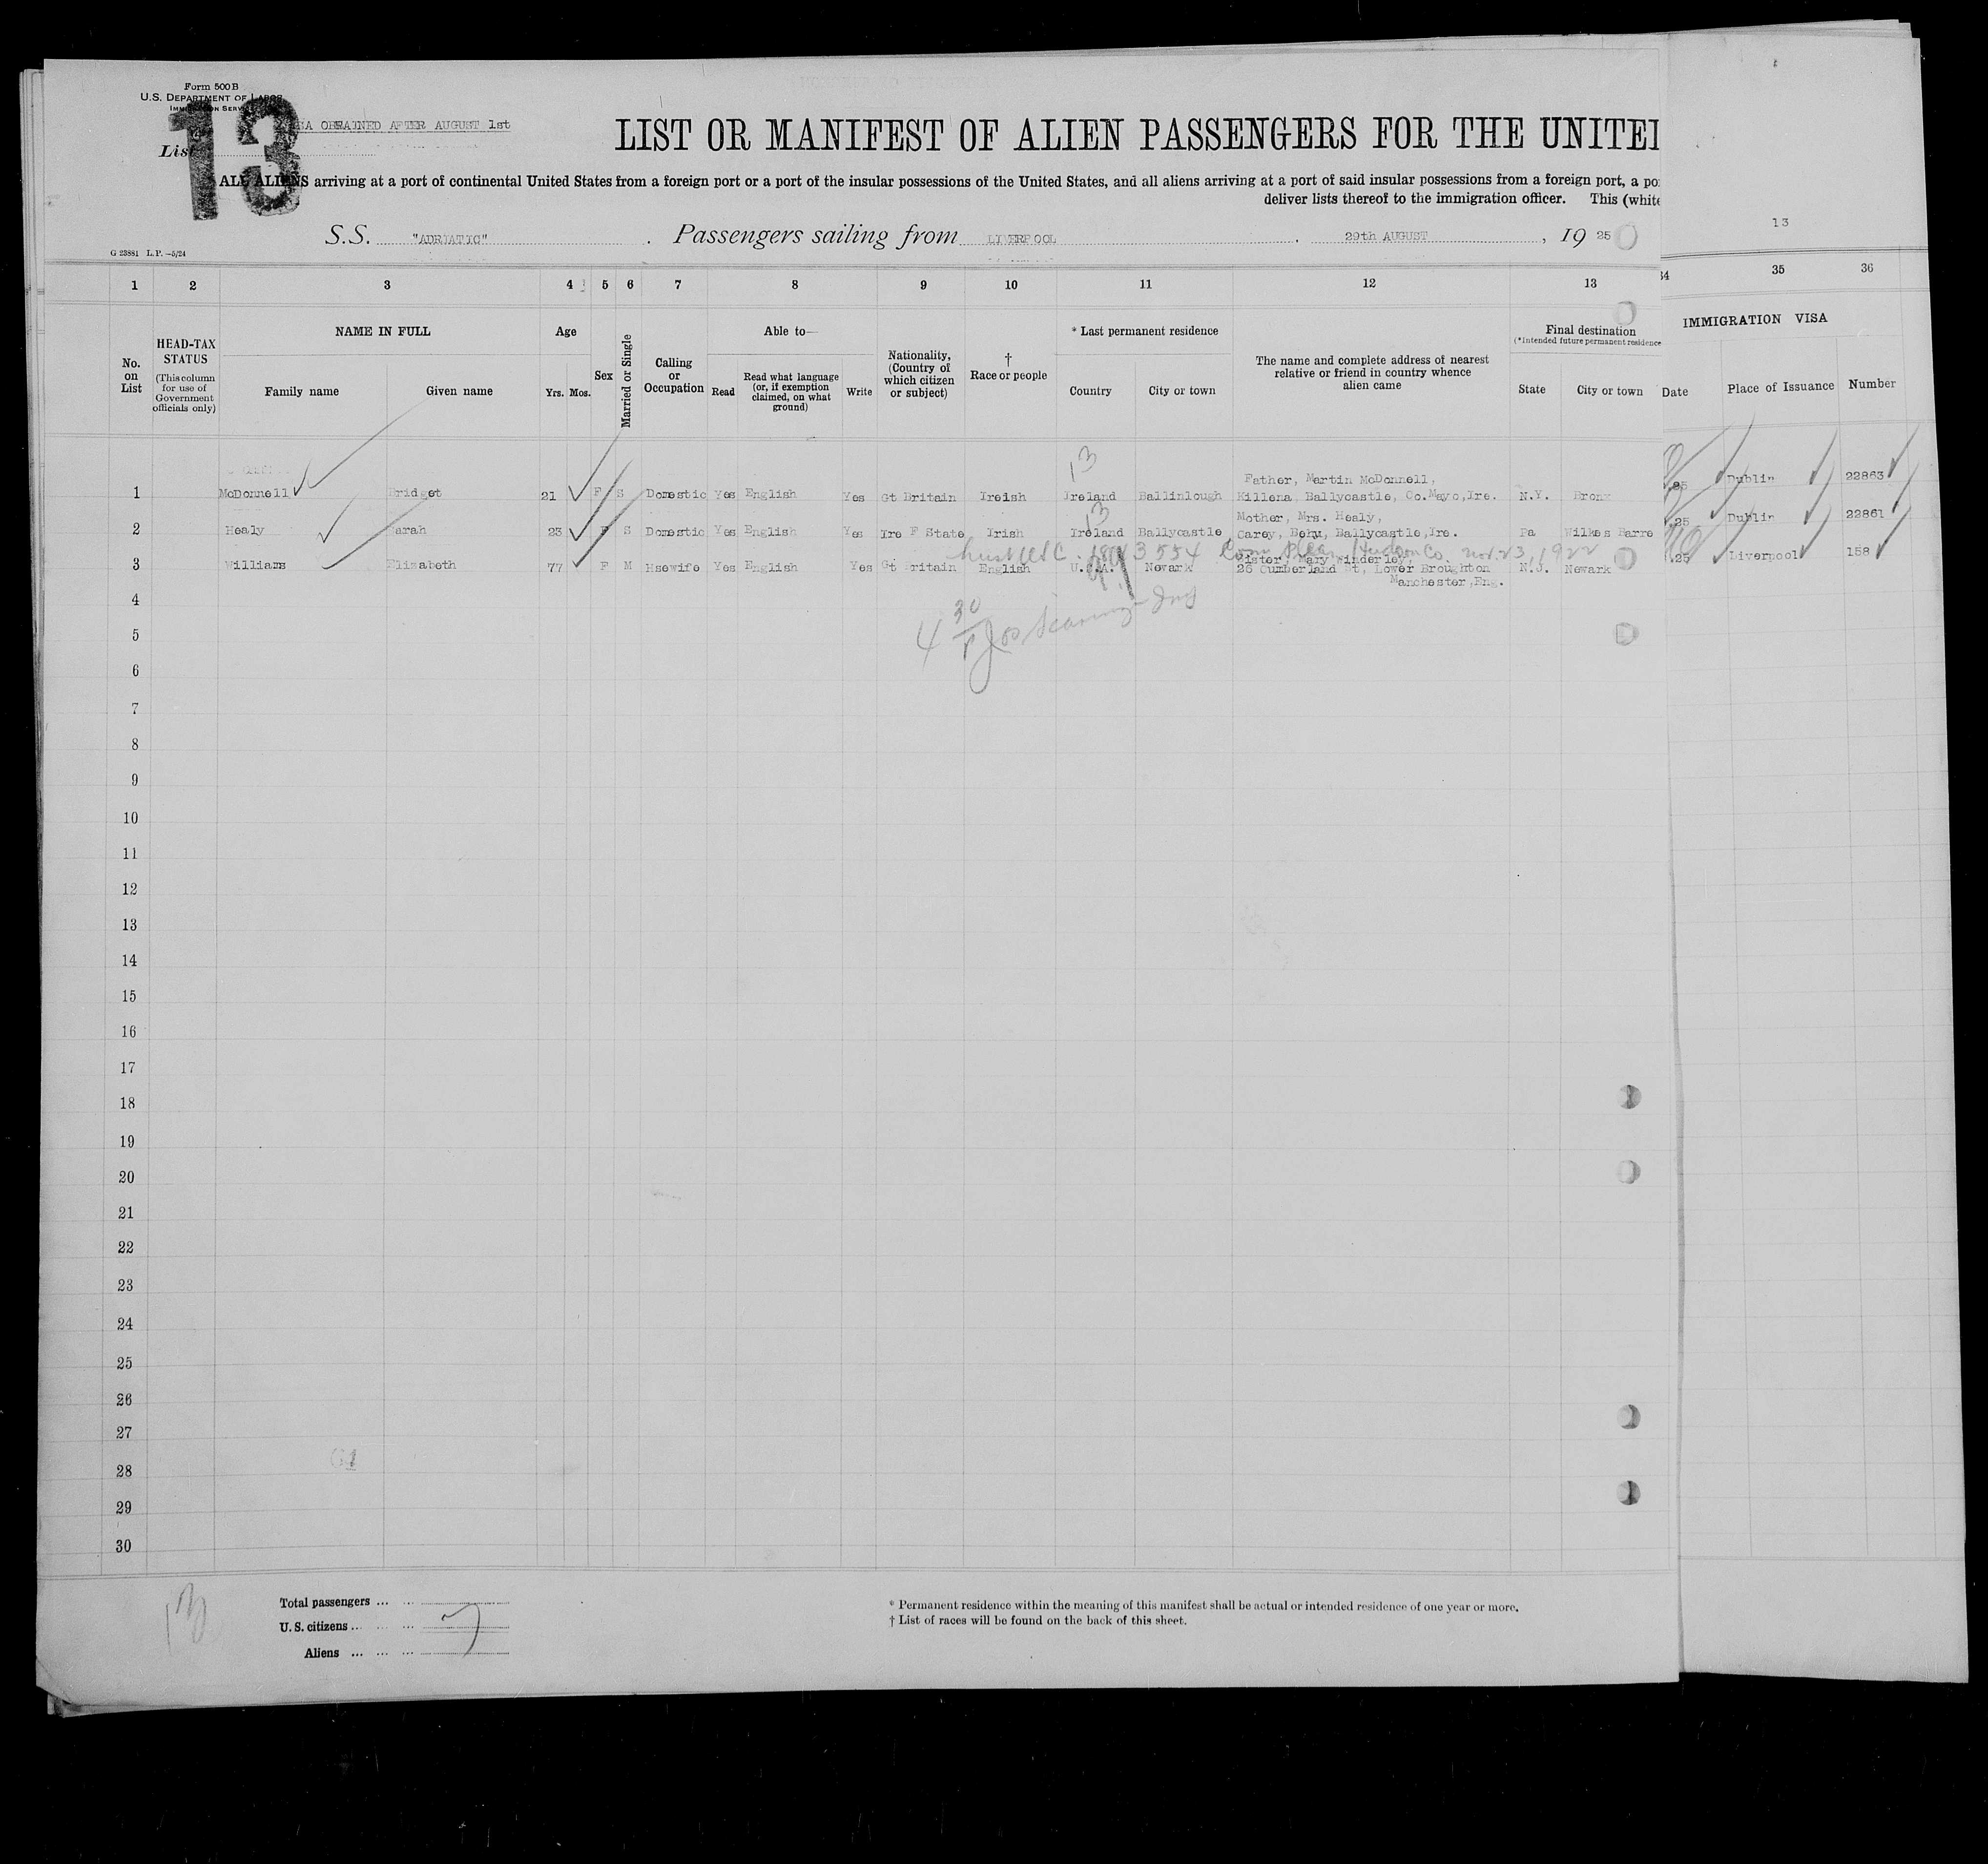 Form 500B
U.S. DEPARTMENT OF LABOR
IMMIGRATION SERVICE
13
OBTAINED AFTER AUGUST 1st
List
LIST OR MANIFEST OF ALIEN PASSENGERS FOR THE UNITE
ALL ALIENS arriving at a port of continental United States from a foreign port or a port of the insular possessions of the United States, and all aliens arriving at a port of said insular possessions from a foreign port, a po
deliver lists thereof to the immigration officer. This (white
13
S.S. "ADRIATIC". Passengers sailing from LIVERPOOL. 29th AUGUST, 19 25
G 23881 L.P.—5/24
1 2 3 4 5 6 7 8 9 10 11 12 13 34 35 36
No. on List
HEAD-TAX STATUS
(This column for use of Government officials only)
NAME IN FULL
Family name Given name
Age
Yrs. Mos.
Sex
Married or Single
Calling or Occupation
Able to—
Read
Read what language (or, if exemption claimed, on what ground)
Write
Nationality, (Country of which citizen or subject)
† Race or people
* Last permanent residence
Country City or town
The name and complete address of nearest relative or friend in country whence alien came
Final destination
(*Intended future permanent residence
State City or town
IMMIGRATION VISA
Date Place of Issuance Number
13
Father, Martin McDonnell,
1 McDonnell Bridget 21 F S Domestic Yes English Yes Gt Britain Ireish Ireland Ballinlough Killena, Ballycastle, Co.Mayo,Ire. N.Y. Bronx 25 Dublin 22863
13
Mother, Mrs. Healy,
2 Healy Sarah 23 F S Domestic Yes English Yes Ire F State Irish Ireland Ballycastle, Carey, Ballycastle,Ire. Pa Wilkes Barre 25 Dublin 22861
3554 Com Pleas, Hudson Co. Nov. 23, 1922
Sister, Mary Winderley,
3 Williams Elizabeth 77 F M Hsewife Yes English Yes Gt Britain English U.S.A. Newark 26 Cumberland St, Lower Broughton N.J. Newark 25 Liverpool 158
Manchester,Eng.
4
5
6
7
8
9
10
11
12
13
14
15
16
17
18
19
20
21
22
23
24
25
26
27
28
29
30
13
Total passengers ...
U. S. citizens ...
Aliens ...
* Permanent residence within the meaning of this manifest shall be actual or intended residence of one year or more.
† List of races will be found on the back of this sheet.